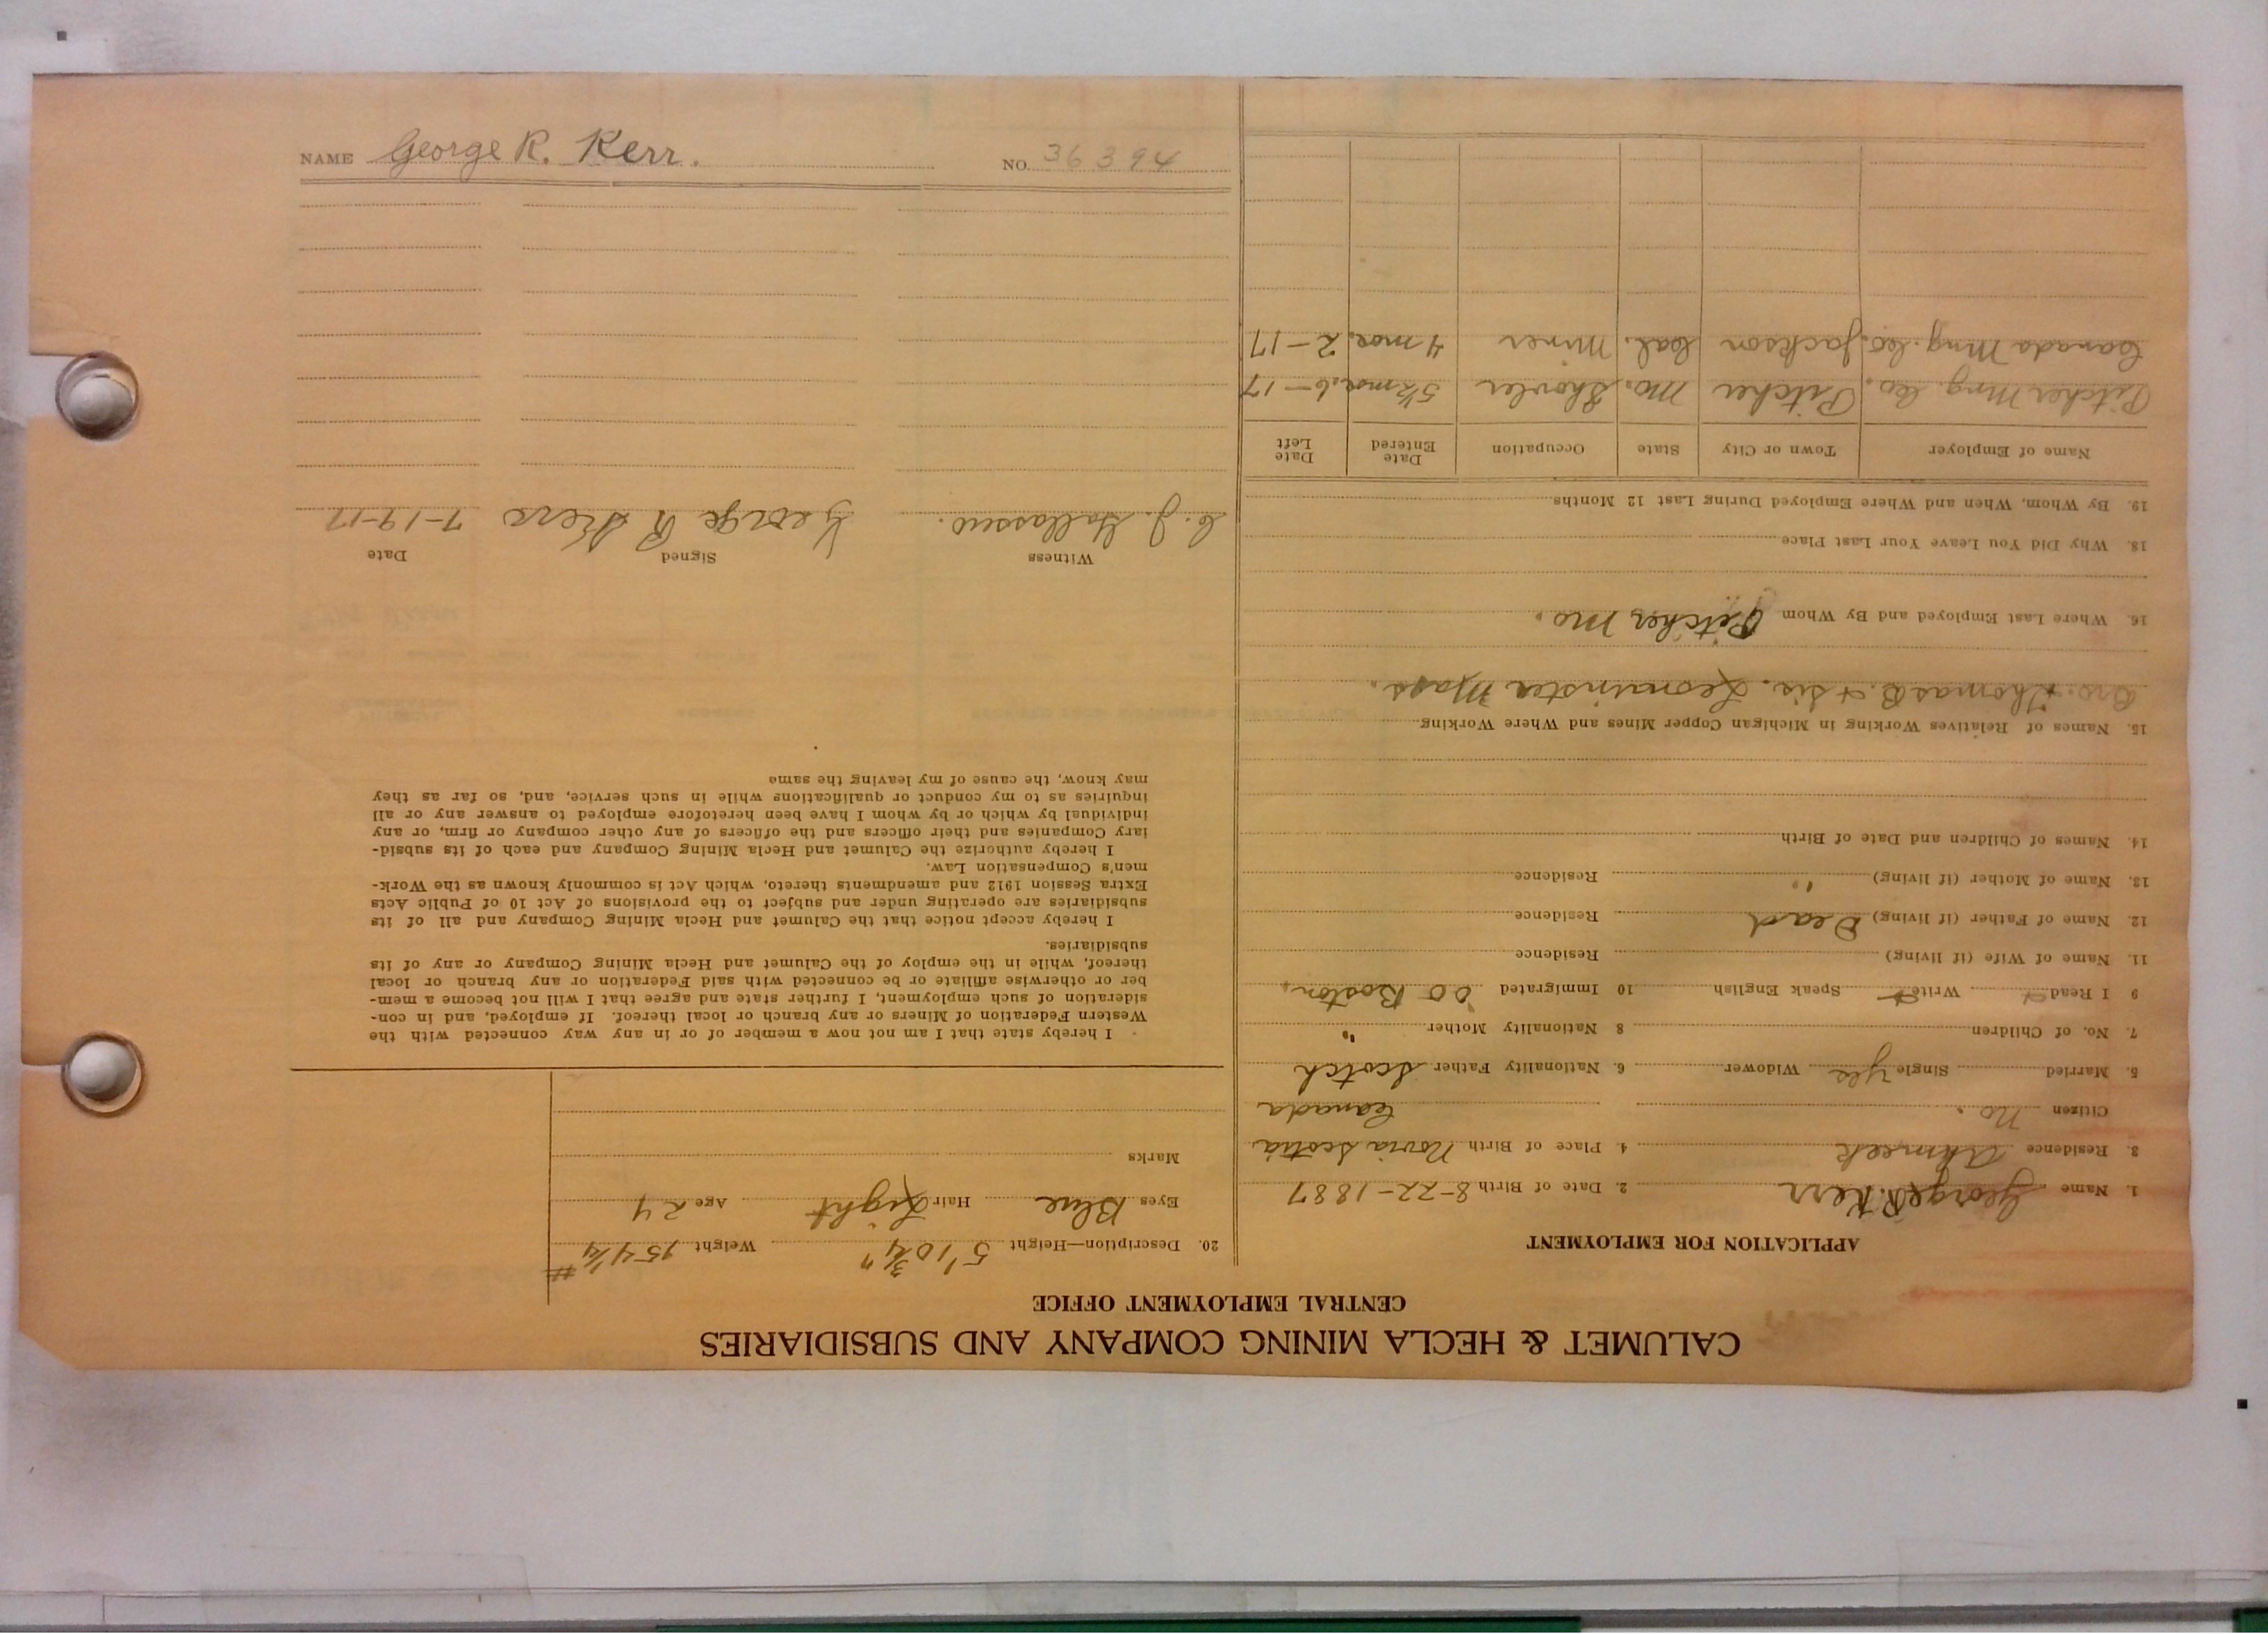 CALUMET & HECLA MINING COMPANY AND SUBSIDIARIES
CENTRAL EMPLOYMENT OFFICE
APPLICATION FOR EMPLOYMENT
1. Name George R. Kerr 2. Date of Birth 8-22-1887
3. Residence Ahmeek 4. Place of Birth Novia Scotia
Citizen no. Canada
5. Married Single yes Widower 6. Nationality Father Scotch
7. No. of Children 8 Nationality Mother "
9 I Read Write Speak English 10 Immigrated Boston,
11. Name of Wife (if living) Residence
12. Name of Father (if living) Dead Residence
13. Name of Mother (if living) " Residence
14. Names of Children and Date of Birth
15. Names of Relatives Working in Michigan Copper Mines and Where Working
Bro. Thomas B. + sis. Leominster Mass.
16. Where Last Employed and By Whom Pitcher Mo.
18. Why Did You Leave Your Last Place
19. By Whom, When and Where Employed During Last 12 Months
Name of Employer Town or City State Occupation Date Entered Date Left
Pitcher Mng. Co. Pitcher Mo. Shovler 5½ mos. 6-17
Canada Mng. Co. Jackson Cal. Miner 4 mos. 2-17
20. Description—Height 5'10¾" Weight 154¼ #
Eyes Blue Hair Light Age 24
Marks
I hereby state that I am not now a member of or in any way connected with the
Western Federation of Miners or any branch or local thereof. If employed, and in con-
sideration of such employment, I further state and agree that I will not become a mem-
ber or otherwise affiliate or be connected with said Federation or any branch or local
thereof, while in the employ of the Calumet and Hecla Mining Company or any of its
subsidiaries.
I hereby accept notice that the Calumet and Hecla Mining Company and all of its
subsidiaries are operating under and subject to the provisions of Act 10 of Public Acts
Extra Session 1912 and amendments thereto, which Act is commonly known as the Work-
men's Compensation Law.
I hereby authorize the Calumet and Hecla Mining Company and each of its subsid-
iary Companies and their officers and the officers of any other company or firm, or any
individual by which or by whom I have been heretofore employed to answer any or all
inquiries as to my conduct or qualifications while in such service, and, so far as they
may know, the cause of my leaving the same
Witness Signed Date
C. J. George R Kerr 7-19-17
NAME George R. Kerr. NO. 36394